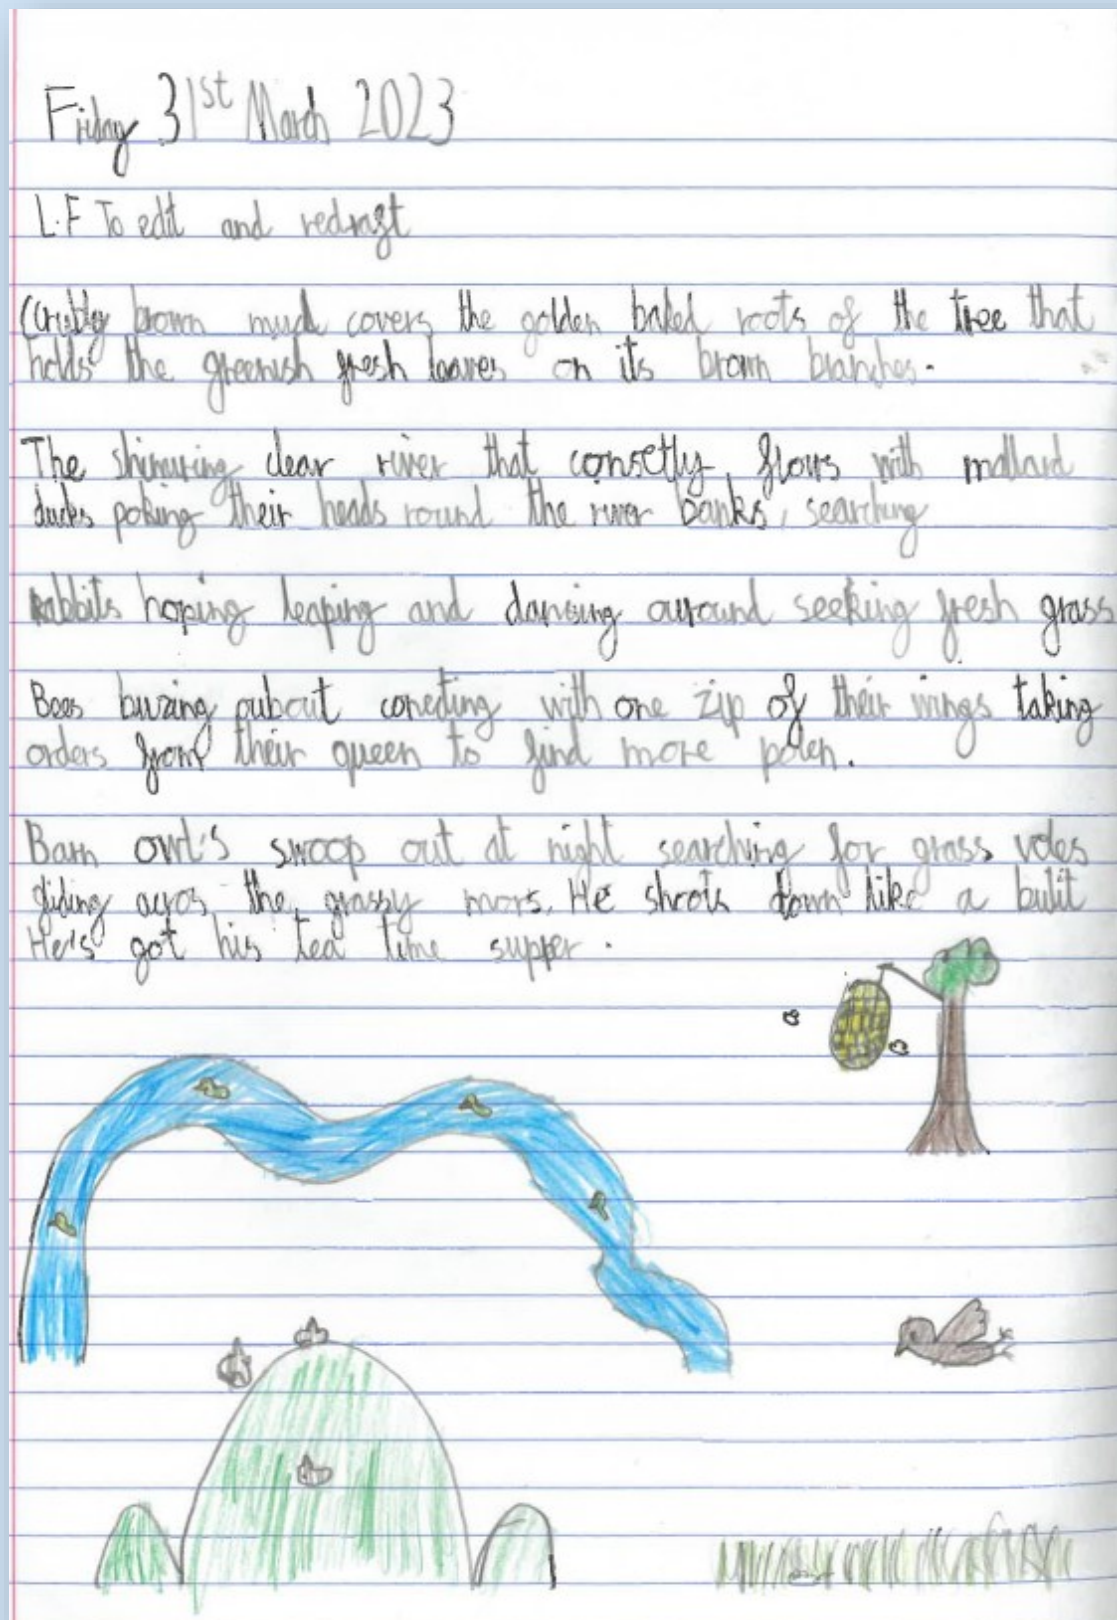 Friday 31st March 2023
L.F To edit and redraft
brown mud covers the golden baked roots of the tree that
holds the greenish fresh leaves on its brown branches.
The shimuring clear river that consetly flows with mallard
ducks poking their heads round the river banks, searching
Rabbits hoping leaping and dansing auround seeking fresh grass
Bees buzing oubout conecting with one zip of their wings taking
orders from their queen to find more polen.
Barn owl's swoop out at night searching for grass voles
gliding acros the grassy mors. He shoots down like a bulit
He's got his tea time supper.